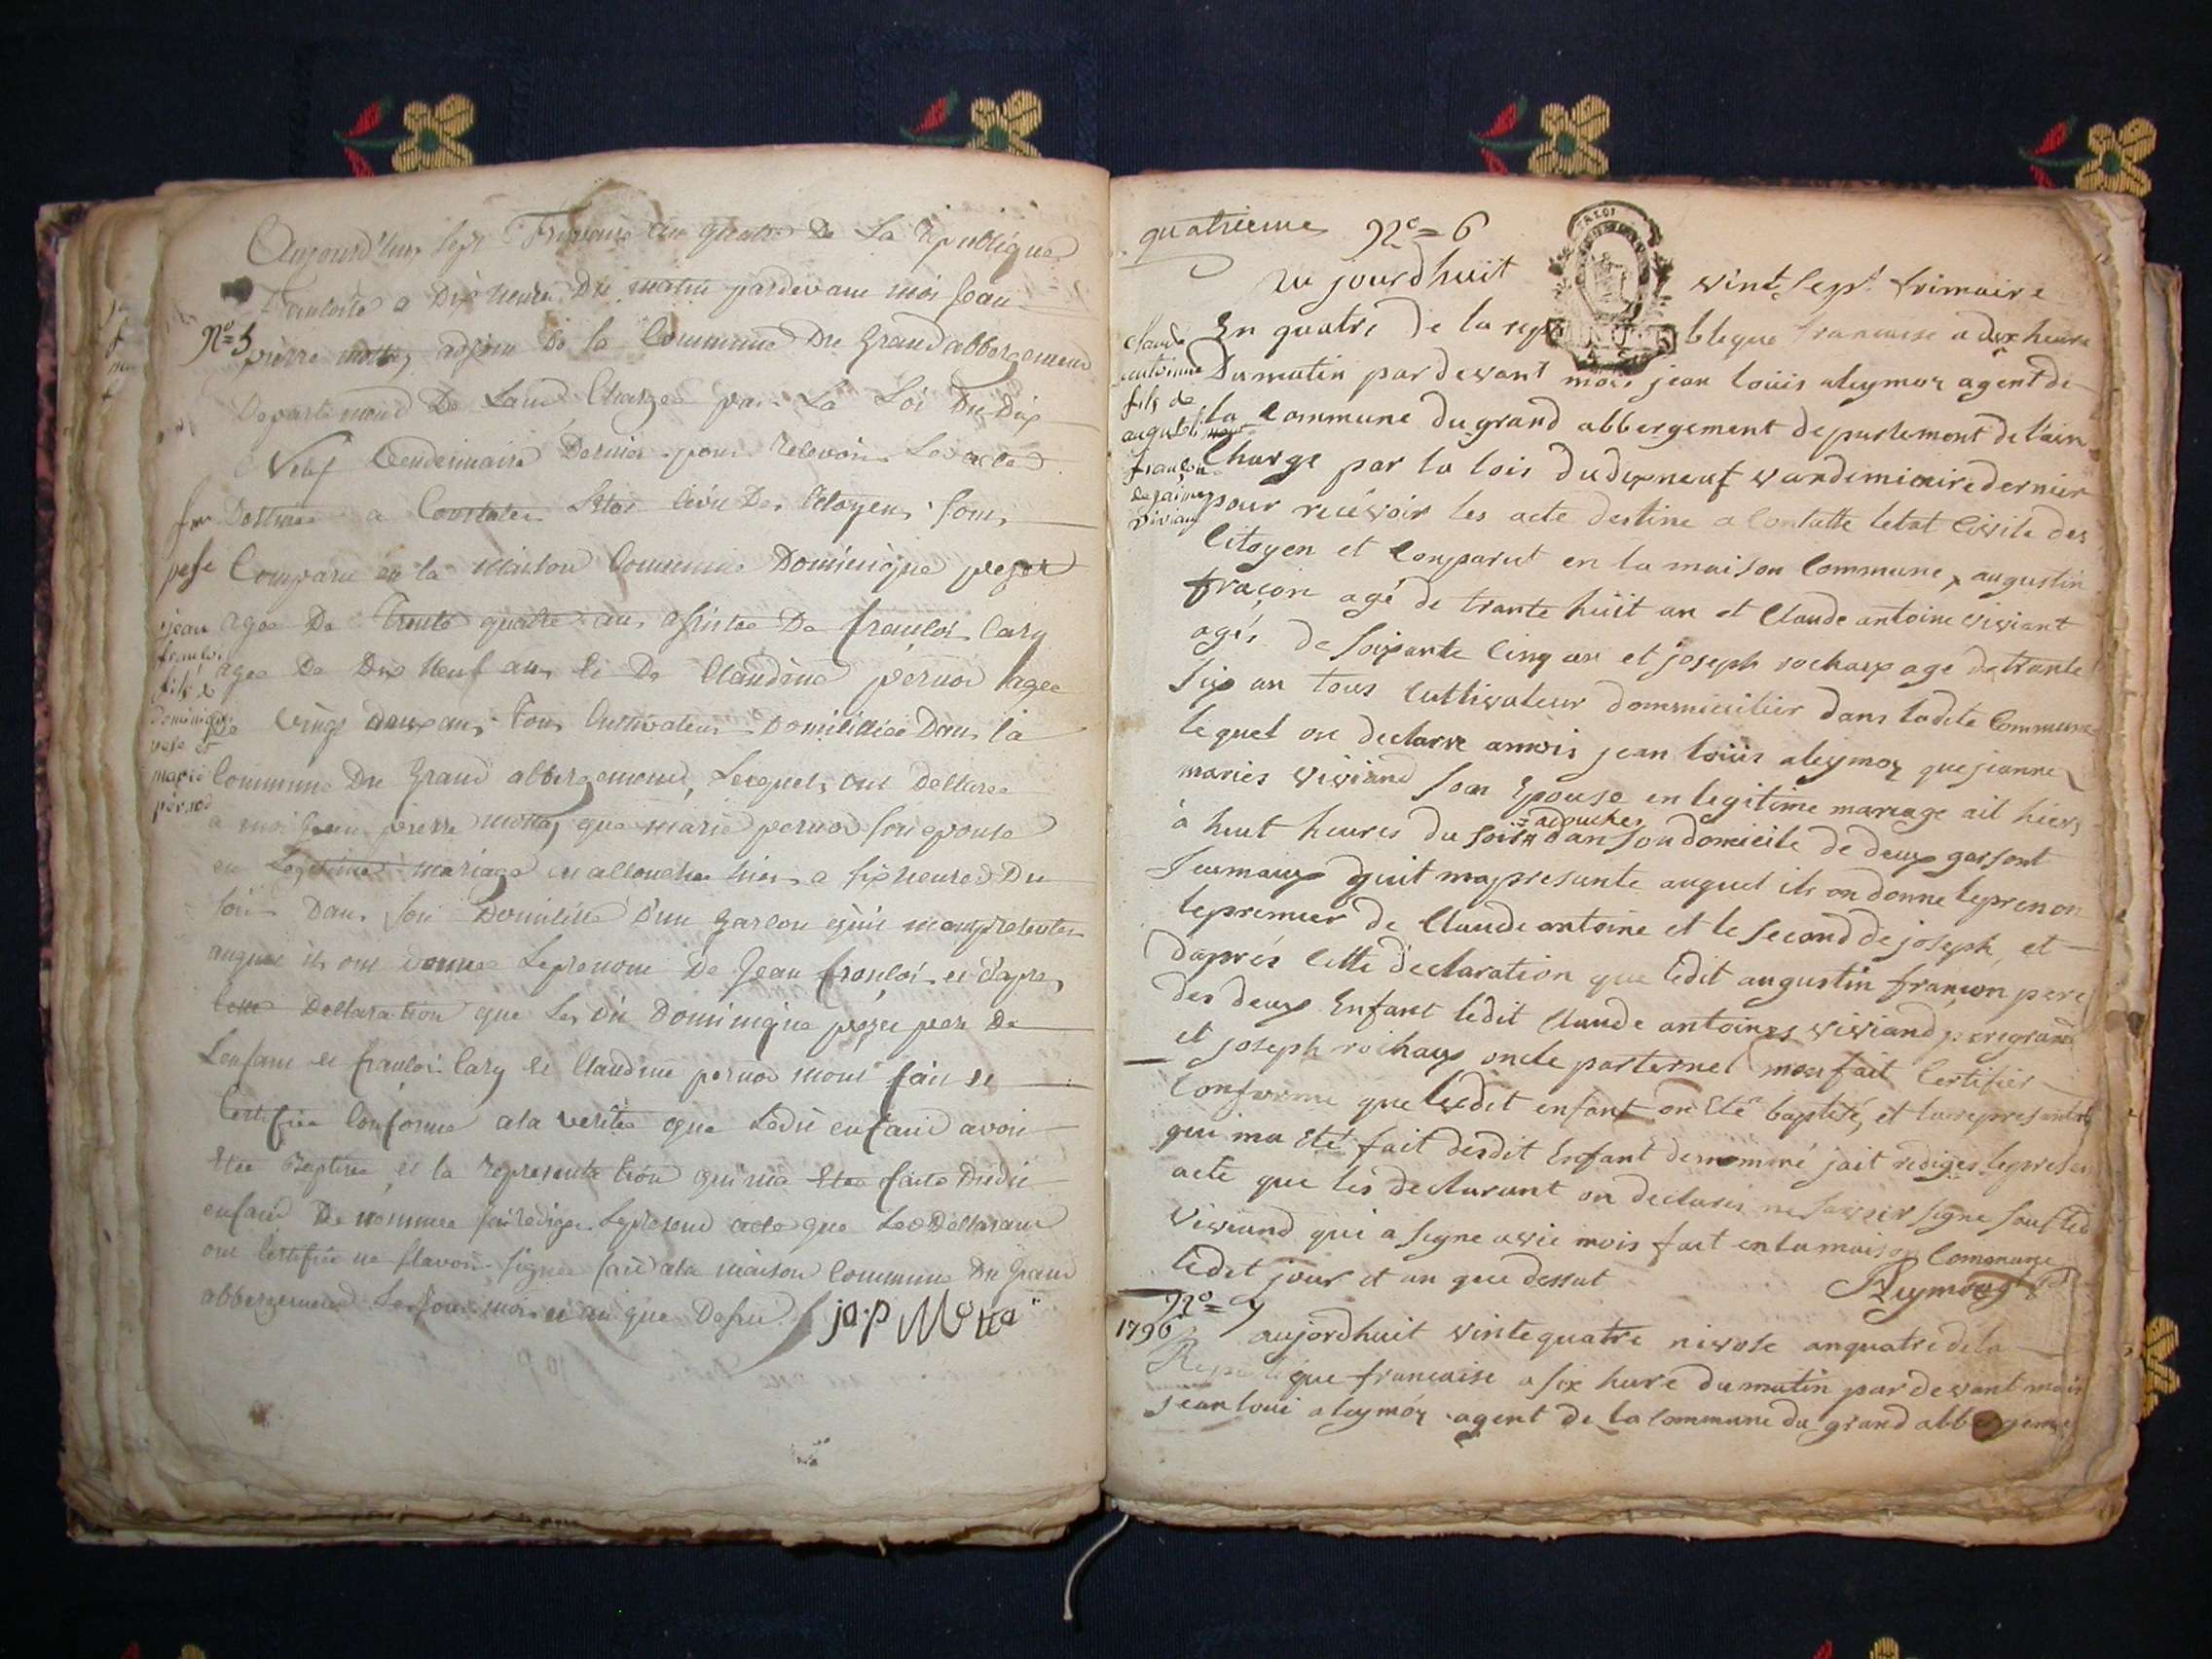 Aujourd'huy sept Frimaire an quatre De La Republique
francoise a Dix heures Du matin pardevant moi jean
N°=5
pierre mottaz adjoin De la Commune Du Grand abbergement
Departement De Laind Chargee par La Loi Du Dix
Neuf Vendemiaire Dernier pour recevoir Les actes
Destinee a Constater Letat Civie Des Citoyens sont
Comparu en la maison Commune Dominique pezet
agee De Trente quatre ans assistee De francoi Cary
agee De Dix Neuf ans et De Claudine pernod agee
De Vingt deux ans Tous Cultivateur Domicilliee Dans la
Commune Du Grand abbergement, Lesquels ont Declaree
a moi jean pierre mottaz que marie pernod son epouse
en Legitime mariage est accouchee hier a six heures Du
soir Dans son Domicille d'un garcon qu'il mont presentee
auquel ils ont donnee Leprenom De Jean francoi et d'apres
Cette Declaration que Les Dit Dominique pezet pere De
Lenfant et francoi Cary et Claudine pernod mont fait et
Certifiee Conforme ala veritee que Ledit enfant avoit
Etee Baptisee et la Representation qui ma Etee faite Dudit
enfant De nommee jai rediger Lepresent acte que Les Declarant
ont Certifiee ne scavoir signee fait ala maison Commune Du Grand
abbergement Les jour mois et an que Dessu
ja:p Motta
jean
francoi
fils de
dominique
peze et
marie
pernod
quatrieme N°=6
Au jourdhuit vint sept frimaire
En quatre de la republeque francaise a dix heure
Du matin par devant mois jean louis aleymoz agent de
la Commune du grand abbergement departement de l'ain
Charge par la lois du dixneuf vandemiaire dernier
pour recevoir les acte destine a Contatte letat Civile des
Citoyen et Conparut en la maison Commune, augustin
fraçon agé de trante huit an et Claude antoine viviant
agés de soixante Cinq an et joseph rochaix agé de trante
six an tous Cultivateur dommicilier dans ladite Commune
lequel on declarre amois jean louis aleymoz que jeanne
maries viviand son Epouse en legitime mariage ait hiers
acoucher
à huit heures du soir dans son domicile de deux garsont
jeumaux quit mapresante auquel ils on donne leprenon
lepremier de Claude antoine et le second de joseph et
daprés Cette declaration que ledit augustin françon pere
des deux Enfant ledit Claude antoines viviand peregrand
et joseph rochaix oncle parternel mon fait Certifier
Conforme que lesdit enfant on Eté baptéte, et lareprésantati
qui ma Eté fait desdit Enfant denommé jait rediges lepresen
acte que les declarant on declares ne savoir signe sauf led
viviand qui a signe avec mois fait en la maison Comenunee
ledit jour et an que dessut
Aleymoz agt
Claude
antoinne
fils de
augusti
françon
viviand
N°=7
1796
aujordhuit vintequatre nivose anquatre dela
Republique francaise a six heure du matin par devant mois
jean loui aleymoz agent de la Commune du grand abbergeme